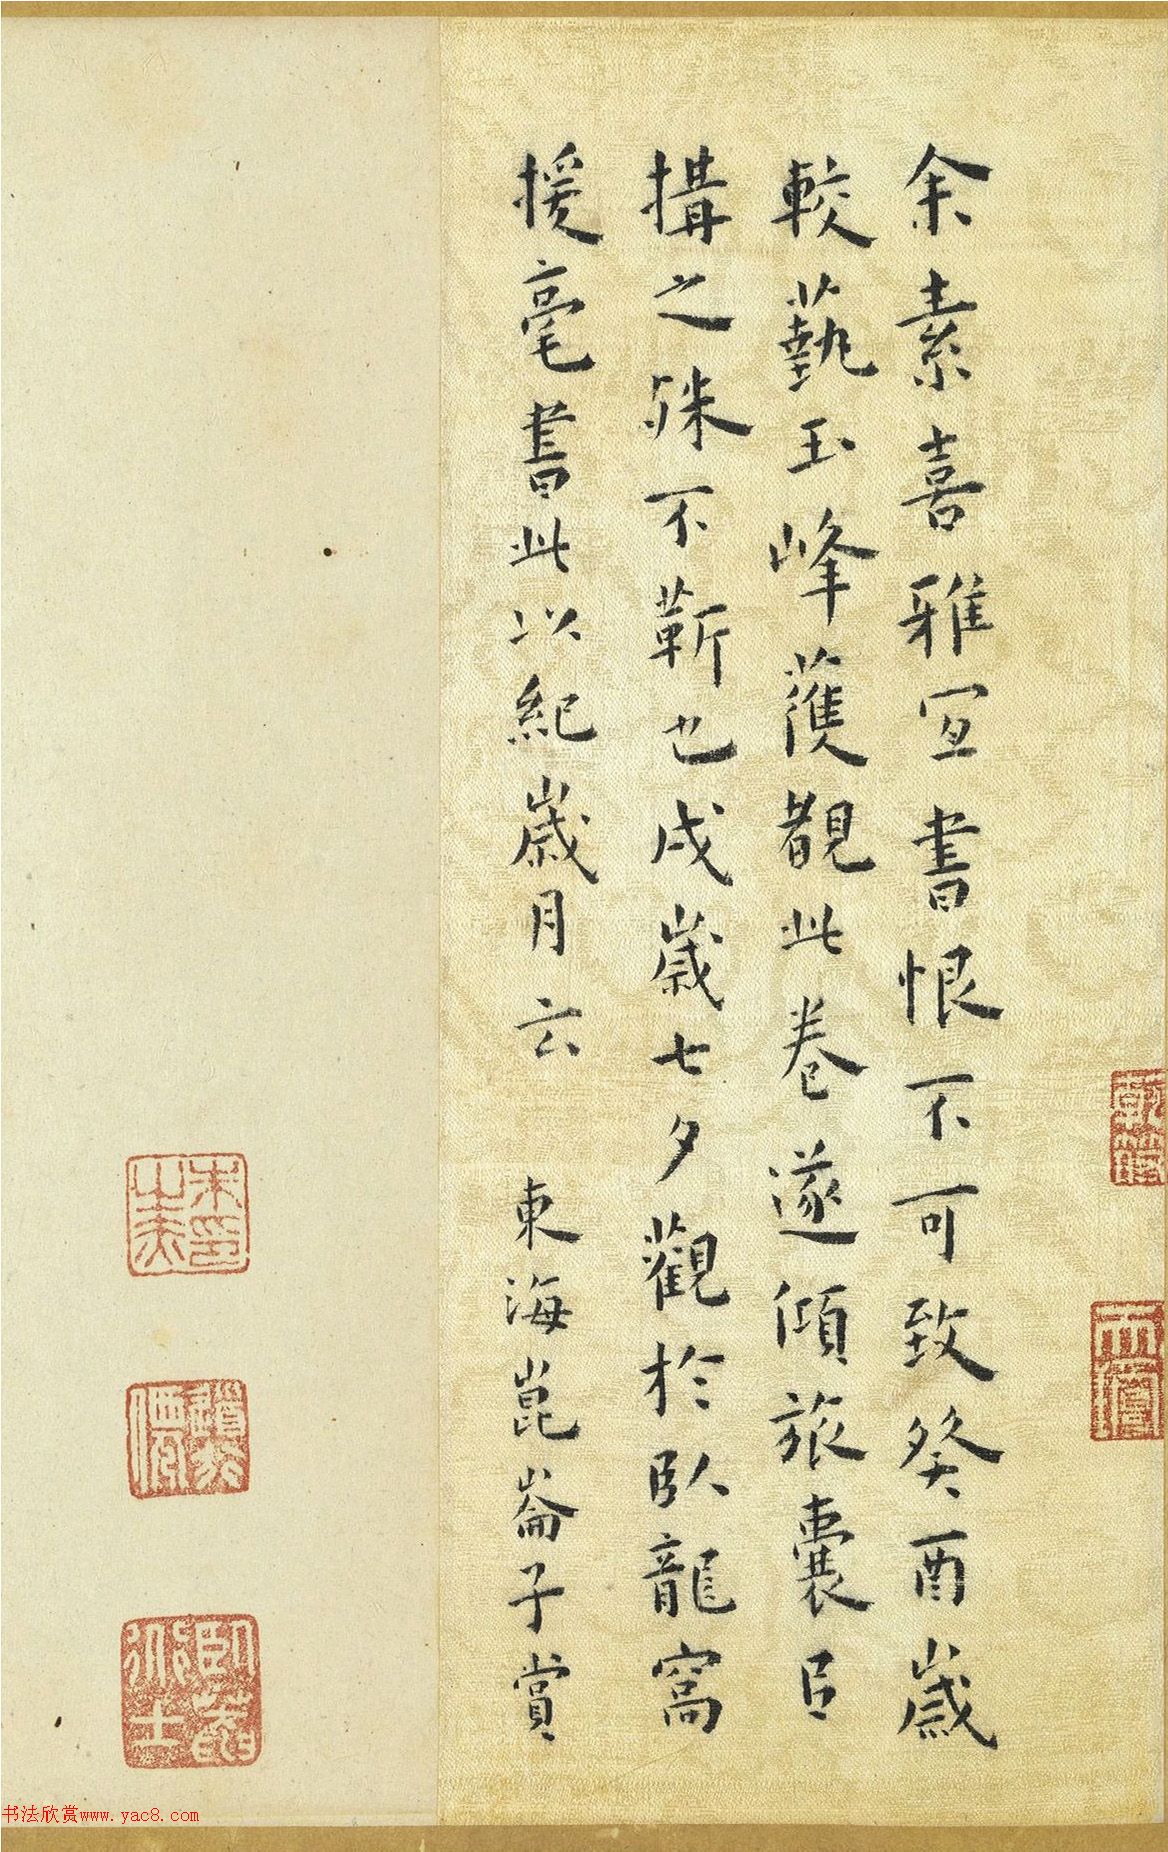 余素喜雅宜書恨不可致癸酉歲
較藝玉峰獲覩此卷遂傾旅囊臣
搆之殊不靳也戌歲七夕觀於臥龍窩
援毫書此以紀歲月云 東海崑崙子賞
朱之赤印
臥菴所士
书法欣赏www.yac8.com